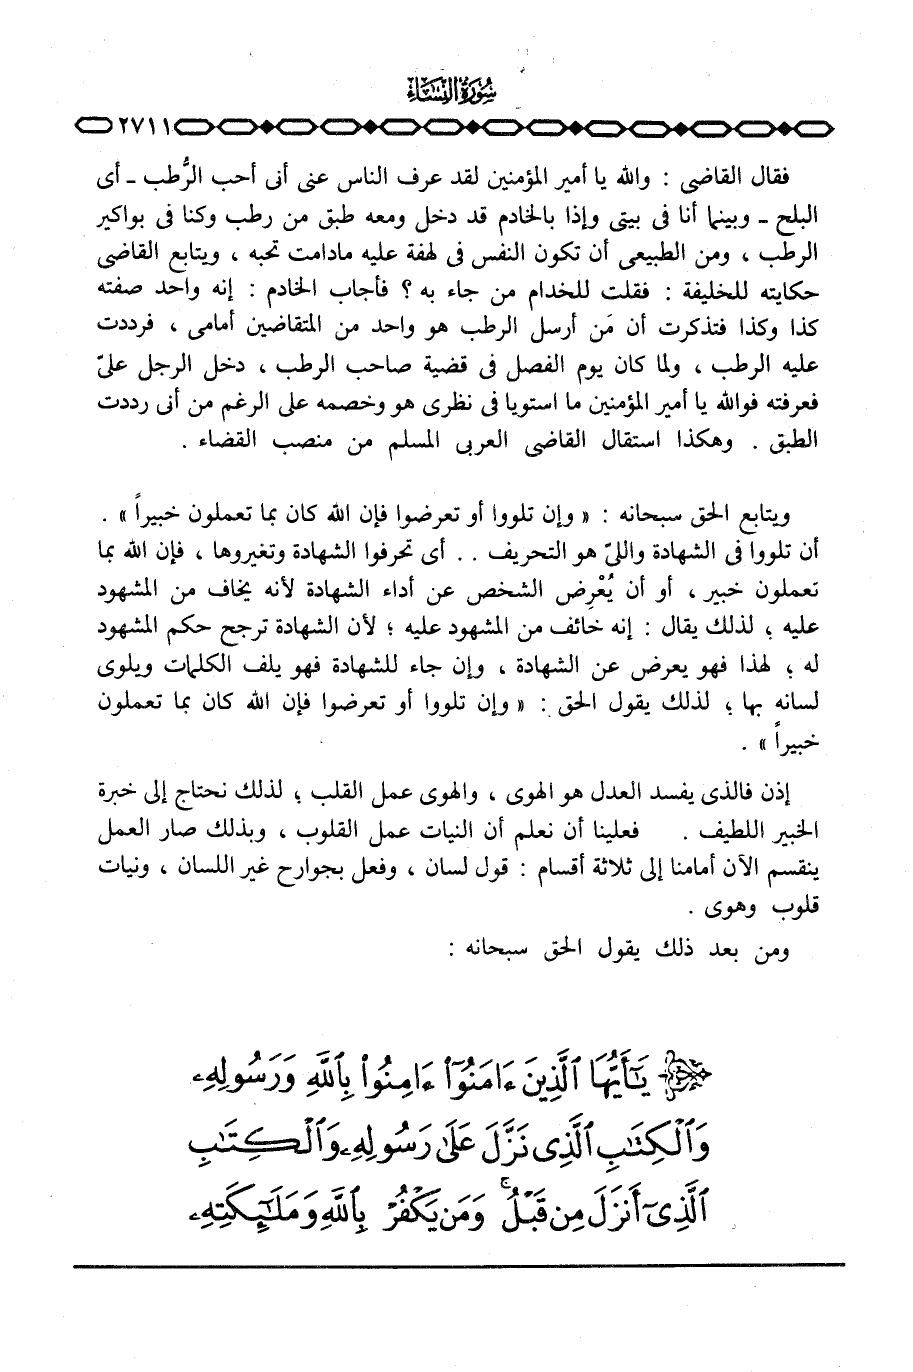 سُورَةُ النِّسَاءِ
٢٧١١
فقال القاضى : والله يا أمير المؤمنين لقد عرف الناس عنى أنى أحب الرُّطب ـ أى
البلح ـ وبينما أنا فى بيتى وإذا بالخادم قد دخل ومعه طبق من رطب وكنا فى بواكير
الرطب ، ومن الطبيعى أن تكون النفس فى لهفة عليه مادامت تحبه ، ويتابع القاضى
حكايته للخليفة : فقلت للخدام من جاء به ؟ فأجاب الخادم : إنه واحد صفته
كذا وكذا فتذكرت أن مَن أرسل الرطب هو واحد من المتقاضين أمامى ، فرددت
عليه الرطب ، ولما كان يوم الفصل فى قضية صاحب الرطب ، دخل الرجل علىّ
فعرفته فوالله يا أمير المؤمنين ما استويا فى نظرى هو وخصمه على الرغم من أنى رددت
الطبق . وهكذا استقال القاضى العربى المسلم من منصب القضاء .
ويتابع الحق سبحانه : « وإن تلووا أو تعرضوا فإن الله كان بما تعملون خبيراً » .
أن تلووا فى الشهادة واللىّ هو التحريف . . أى تحرفوا الشهادة وتغيروها ، فإن الله بما
تعملون خبير ، أو أن يُعْرِض الشخص عن أداء الشهادة لأنه يخاف من المشهود
عليه ؛ لذلك يقال : إنه خائف من المشهود عليه ؛ لأن الشهادة ترجح حكم المشهود
له ؛ لهذا فهو يعرض عن الشهادة ، وإن جاء للشهادة فهو يلف الكلمات ويلوى
لسانه بها ؛ لذلك يقول الحق : « وإن تلووا أو تعرضوا فإن الله كان بما تعملون
خبيراً » .
إذن فالذى يفسد العدل هو الهوى ، والهوى عمل القلب ؛ لذلك نحتاج إلى خبرة
الخبير اللطيف . فعلينا أن نعلم أن النيات عمل القلوب ، وبذلك صار العمل
ينقسم الآن أمامنا إلى ثلاثة أقسام : قول لسان ، وفعل بجوارح غير اللسان ، ونيات
قلوب وهوى .
ومن بعد ذلك يقول الحق سبحانه :
يَٰٓأَيُّهَا ٱلَّذِينَ ءَامَنُوٓا۟ ءَامِنُوا۟ بِٱللَّهِ وَرَسُولِهِۦ
وَٱلْكِتَٰبِ ٱلَّذِى نَزَّلَ عَلَىٰ رَسُولِهِۦ وَٱلْكِتَٰبِ
ٱلَّذِىٓ أَنزَلَ مِن قَبْلُ ۚ وَمَن يَكْفُرْ بِٱللَّهِ وَمَلَٰٓئِكَتِهِۦ